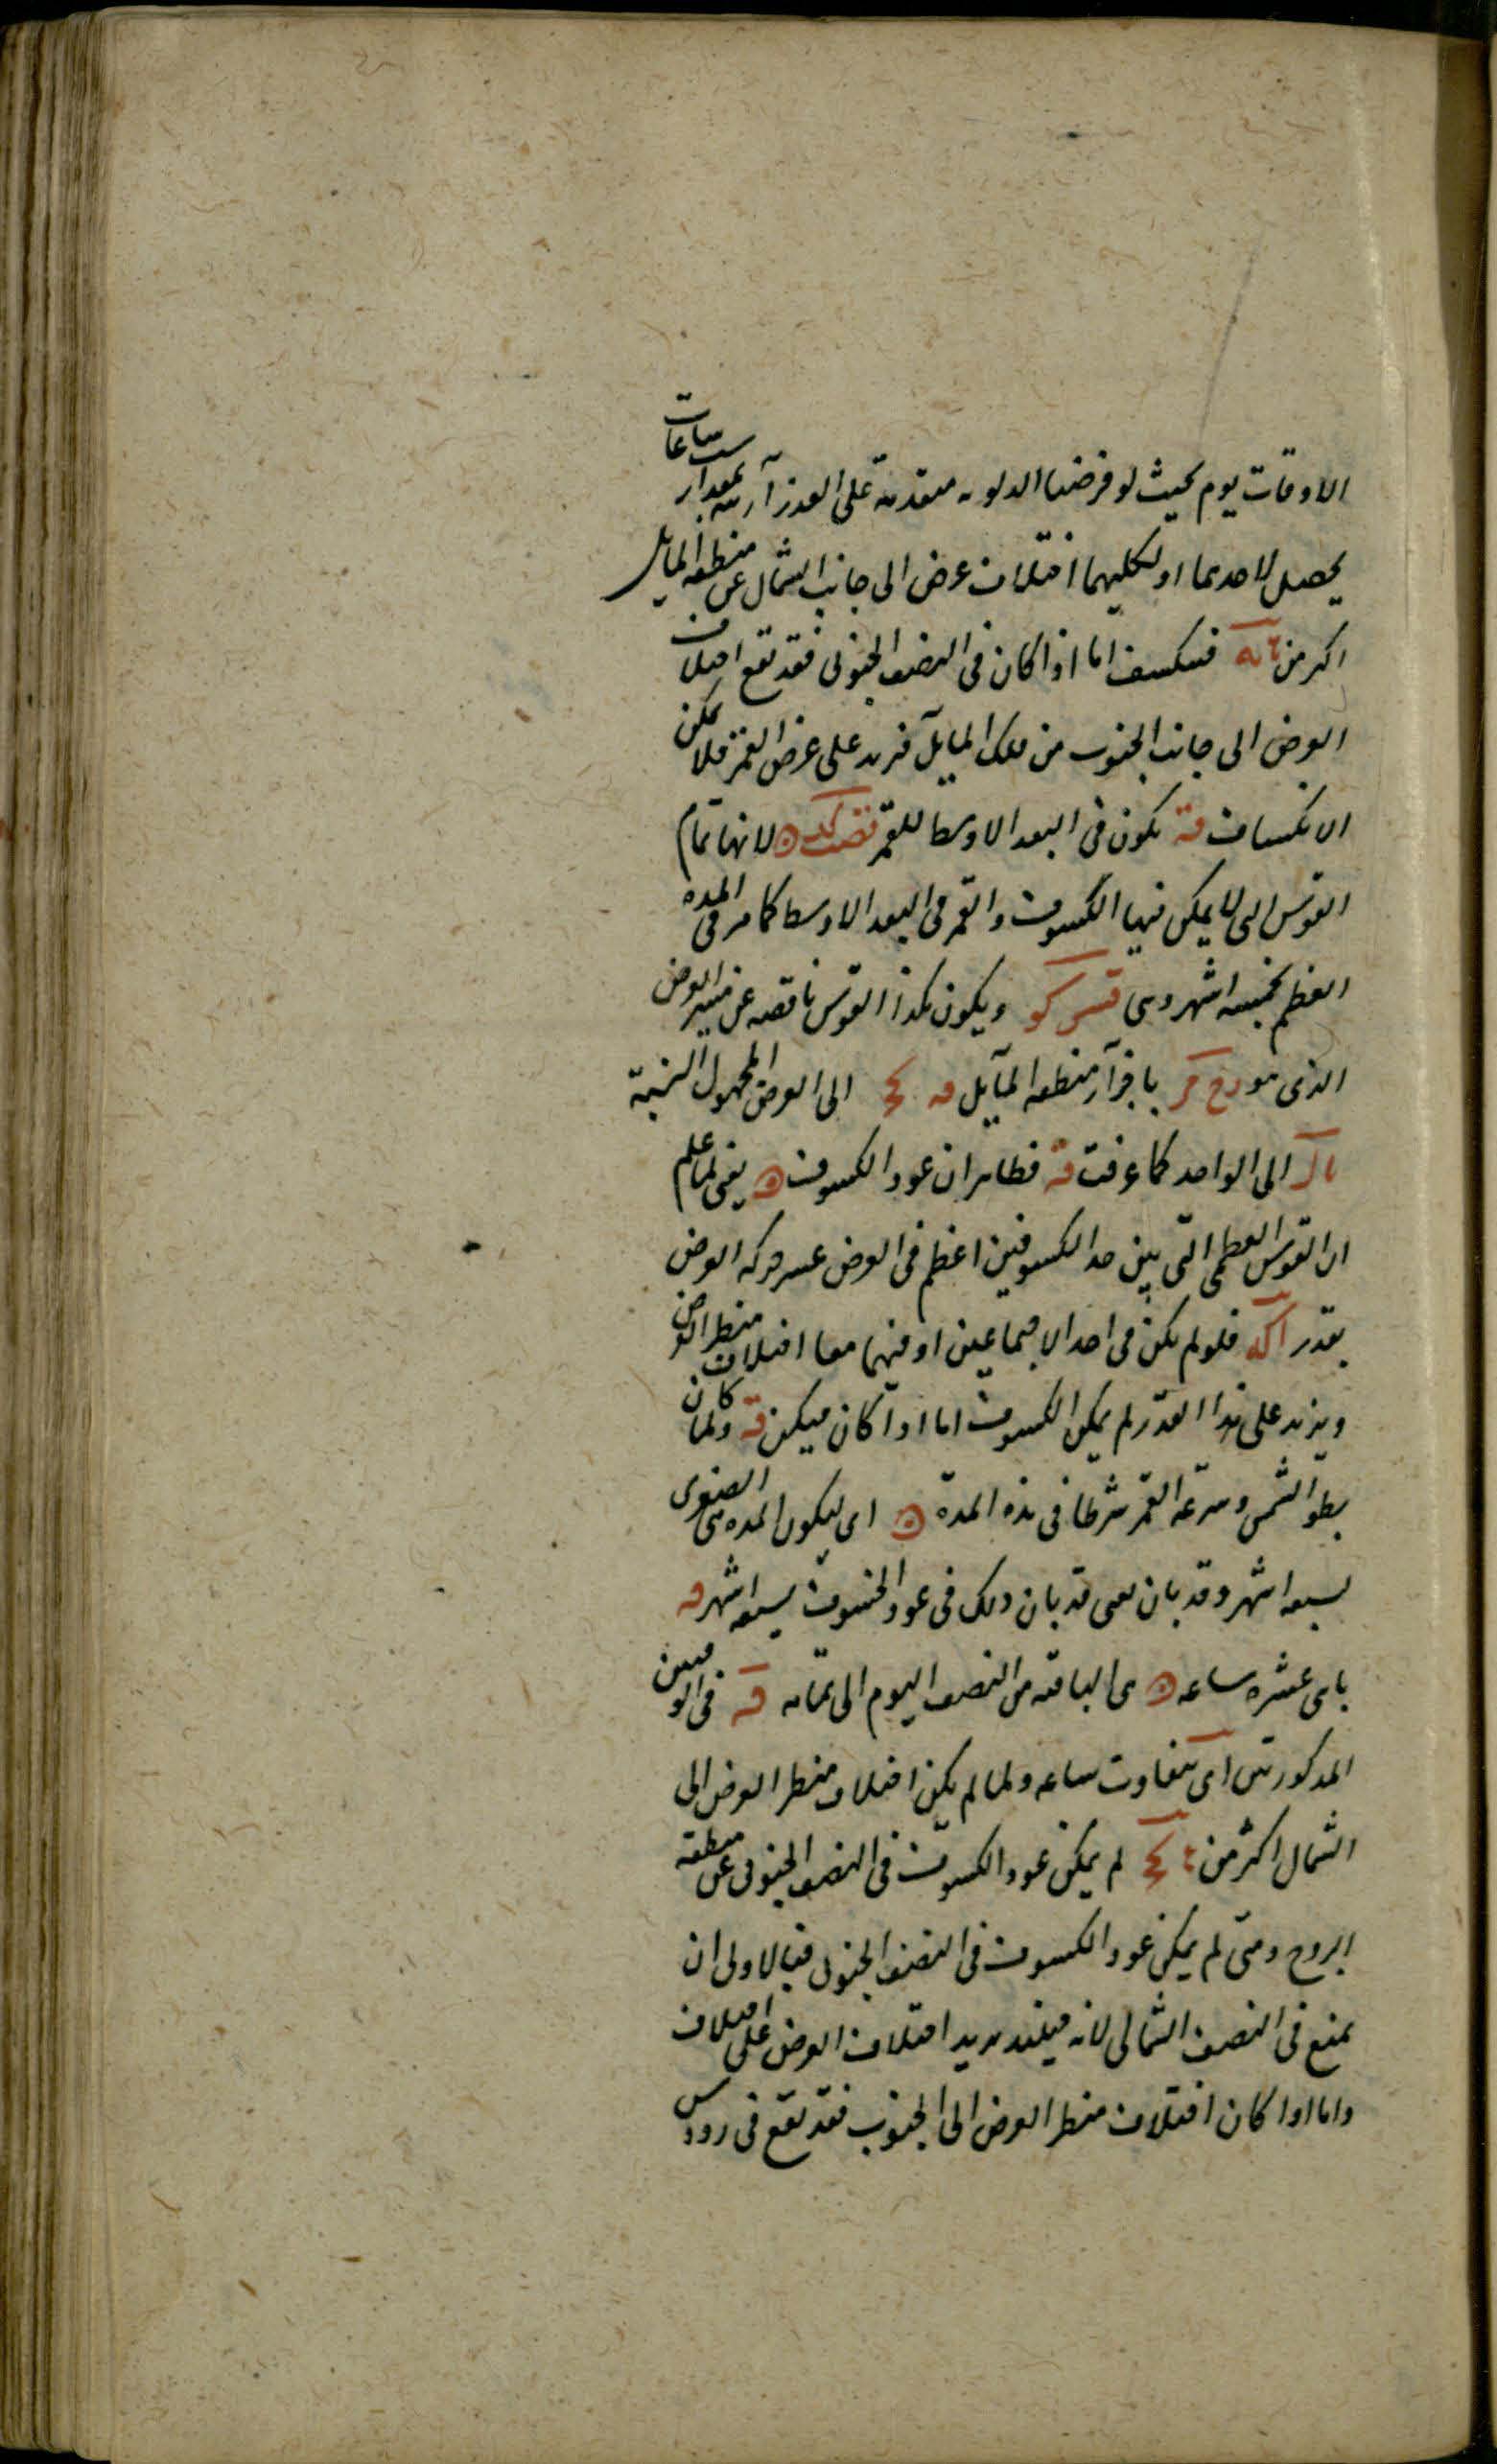 الاوقات يوم بحيث لو فرضنا الدلو متقدمة على العذرآ بمقدار ساعات
يحصل لاحدهما او لكليهما اختلاف عرض الى جانب الشمال عن منطقه المايل
اكثر من فسكسف اما اذا كان فى النصف الجنوبى فقد تقع اختلاف
العرض الى جانب الجنوب من فلك المايل فزيد على عرض القمر فلا يمكن
الانكساف قه يكون فى البعد الاوسط للقمر لانها تمام
القوس التى لا يمكن فيها الكسوف والقمر فى البعد الاوسط كما مر فى المده
العظم بخمسه اشهر وهى قس كو ويكون هكذا القوس ناقصه عن مسير العرض
الذى هو باجزآ منطقه المآيل الى العرض المجهول النسبة
الى الواحد كما عرفت قه فظاهر ان عود الكسوف يعنى لما علم
ان القوس العظمى التى بين حد الكسوفين اعظم فى العرض عن حركه العرض
بقدر اكه فلو لم يكن فى احد الاجتماعين او فيهما معا اختلاف منظر العرض
ويزيد على هذا القدر لم يمكن الكسوف اما اذا كان فيمكن قه ولما كان
بطو الشمس وسرعه القمر شرطا فى هذه المدة اى ليكون المده هى الصغرى
لسبعه اشهر وقد بان يعنى قد بان ذلك فى عود الخسوف بسبعه اشهر قه
باى عشره ساعه هى الباقيه من النصف اليوم الى تمامه قه فى القوسين
المذكورتين اى بتفاوت ساعه ولما لم يكن اختلاف منظر العرض الى
الشمال اكثر من لم يمكن عود الكسوف فى النصف الجنوبى عن منطقه
البروج ومتى لم يمكن عود الكسوف فى النصف الجنوبى فبالاولى ان
يمنع فى النصف الشمالى لانه حينئذ يزيد اختلاف العرض على اختلاف
واما اذا كان اختلاف منظر العرض الى الجنوب فقد تقع فى